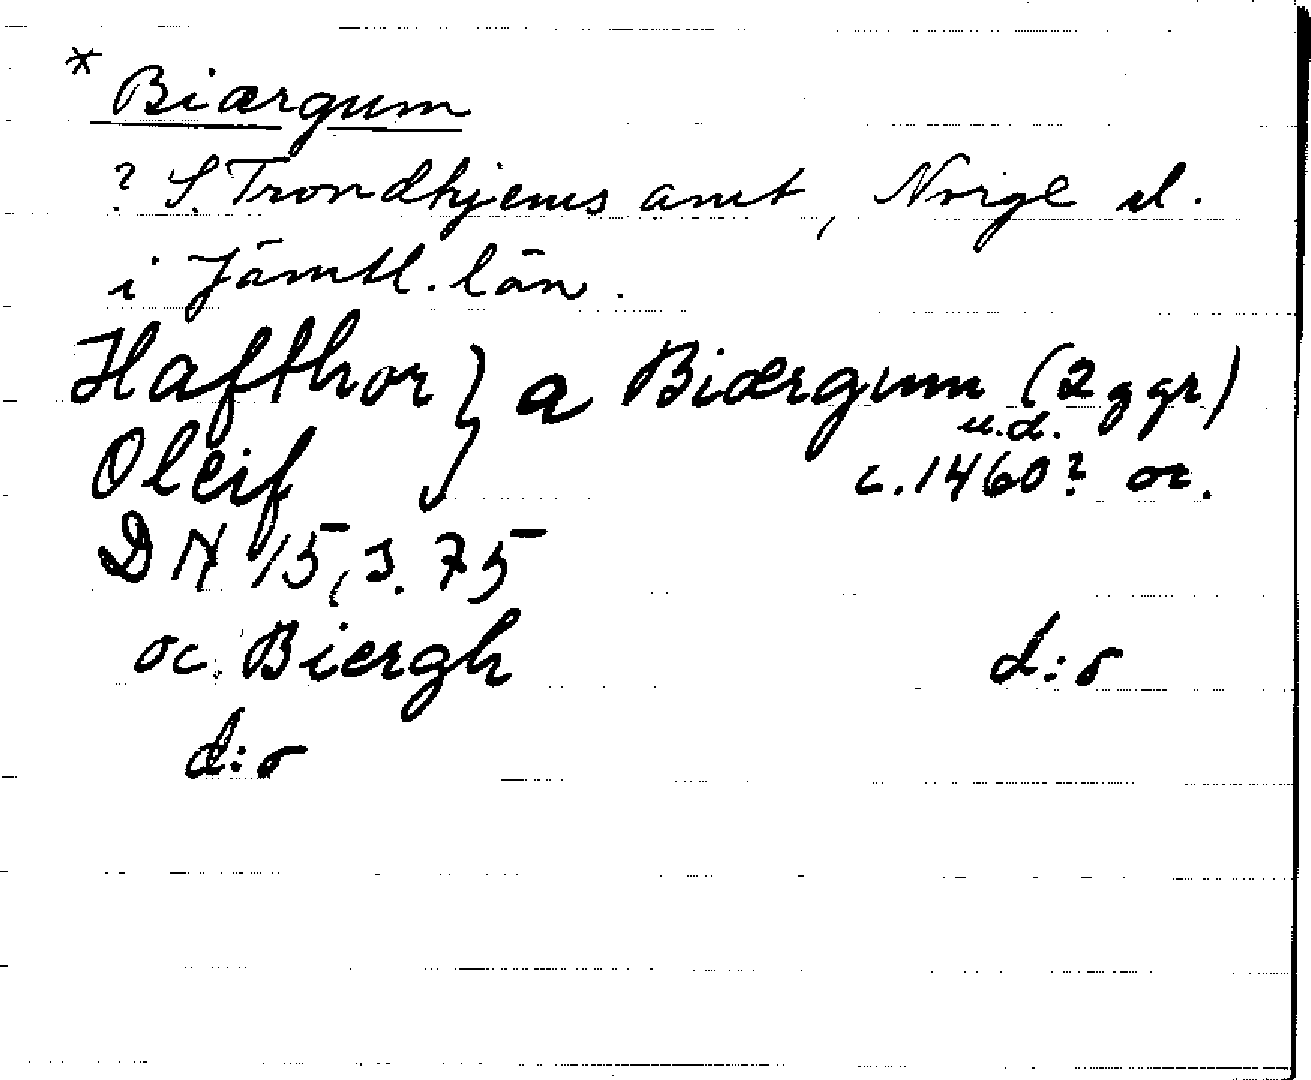 * Biærgum
? S. Trondhjems amt, Norge el.
i Jämtl. län.
Hafthor } a Biærgum (2 ggr)
u.d.
Oleif c. 1460? or.
DN 15, s. 75
oc. Biergh d:o
d:o